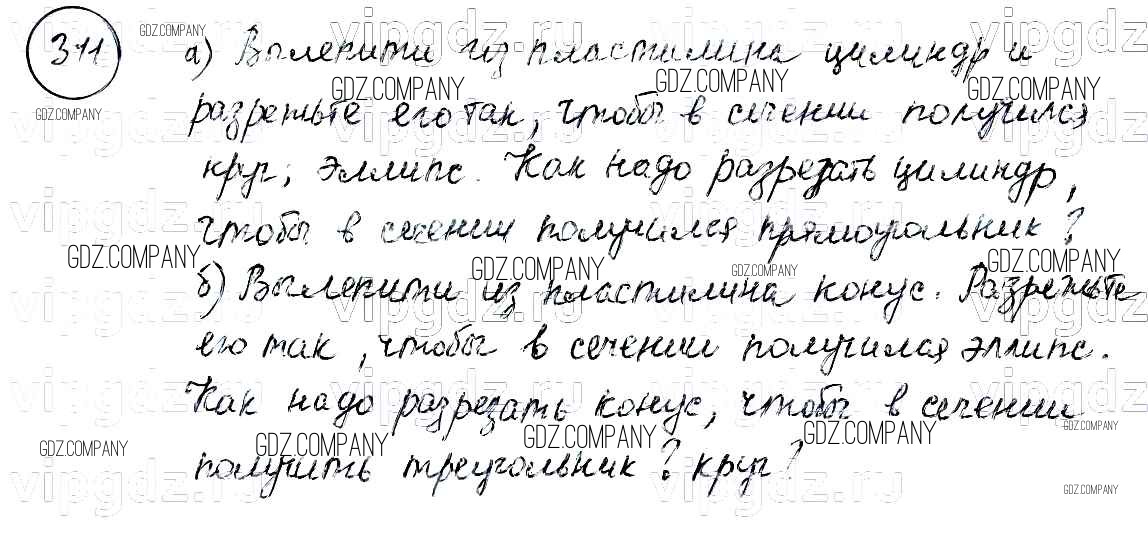 311
а) Вылепити из пластилина цилиндр и
разрежьте его так, чтобы в сечении получился
круг; эллипс. Как надо разрезать цилиндр,
чтобы в сечении получился прямоугольник?
б) Вылепити из пластилина конус. Разрежьте
его так, чтобы в сечении получился эллипс.
Как надо разрезать конус, чтобы в сечении
получить треугольник? круг?
GDZ.COMPANY
vipgdz.ru